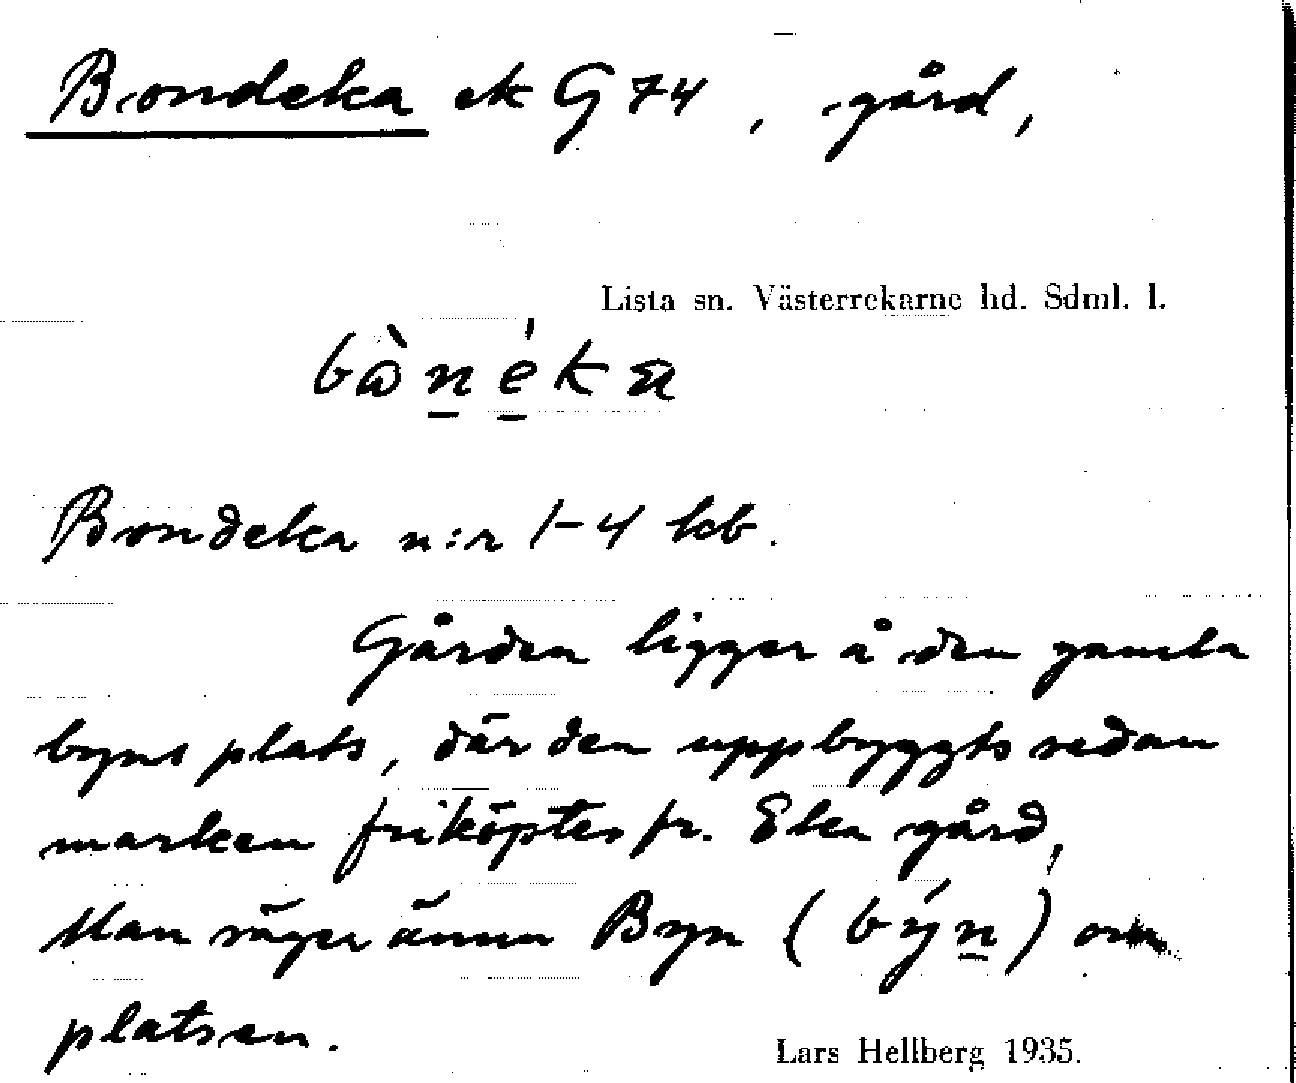 Bondeka ek G 74, gård,
Lista sn. Västerrekarne hd. Sdml. l.
Bondeka n:r 1-4 kb.
Gården ligger å den gamla
byns plats, där den uppbyggts sedan
marken friköptes fr. Eka gård,
Man säger ännu Byn (býn) om
platsen.
Lars Hellberg 1935.